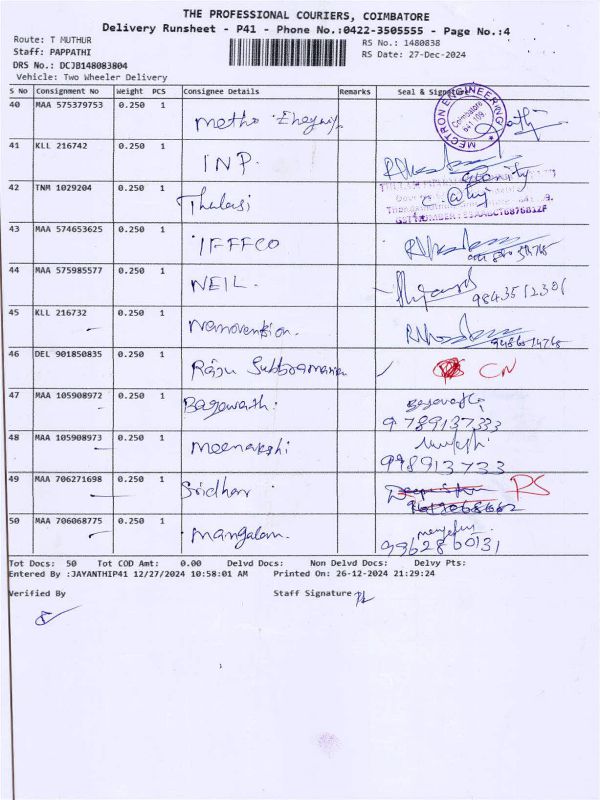 THE PROFESSIONAL COURIERS, COIMBATORE
Delivery Runsheet - P41 - Phone No.:0422-3505555 - Page No.:4
Route: T MUTHUR
RS No.: 1480838
Staff: PAPPATHI
RS Date: 27-Dec-2024
DRS No.: DCJB148083804
Vehicle: Two Wheeler Delivery
S No Consignment No Weight PCS Consignee Details Remarks Seal & Signature
40 MAA 575379753 0.250 1
MECTRON ENGINEERING
Coimbatore
641 109
41 KLL 216742 0.250 1 INP.
42 TNM 1029204 0.250 1 Thulasi
43 MAA 574653625 0.250 1 IFFFCO
44 MAA 575985577 0.250 1 NEIL. 9843512301
45 KLL 216732 0.250 1 Nanovention.
46 DEL 901850835 0.250 1 Raju Subbramanian CN
47 MAA 105908972 0.250 1 Bagawathi
9789137333
48 MAA 105908973 0.250 1 meenakshi
998913733
49 MAA 706271698 0.250 1 Sridhar RS
50 MAA 706068775 0.250 1 mangalam.
Tot Docs: 50 Tot COD Amt: 0.00 Delvd Docs: Non Delvd Docs: Delvy Pts:
Entered By :JAYANTHIP41 12/27/2024 10:58:01 AM Printed On: 26-12-2024 21:29:24
Verified By Staff Signature